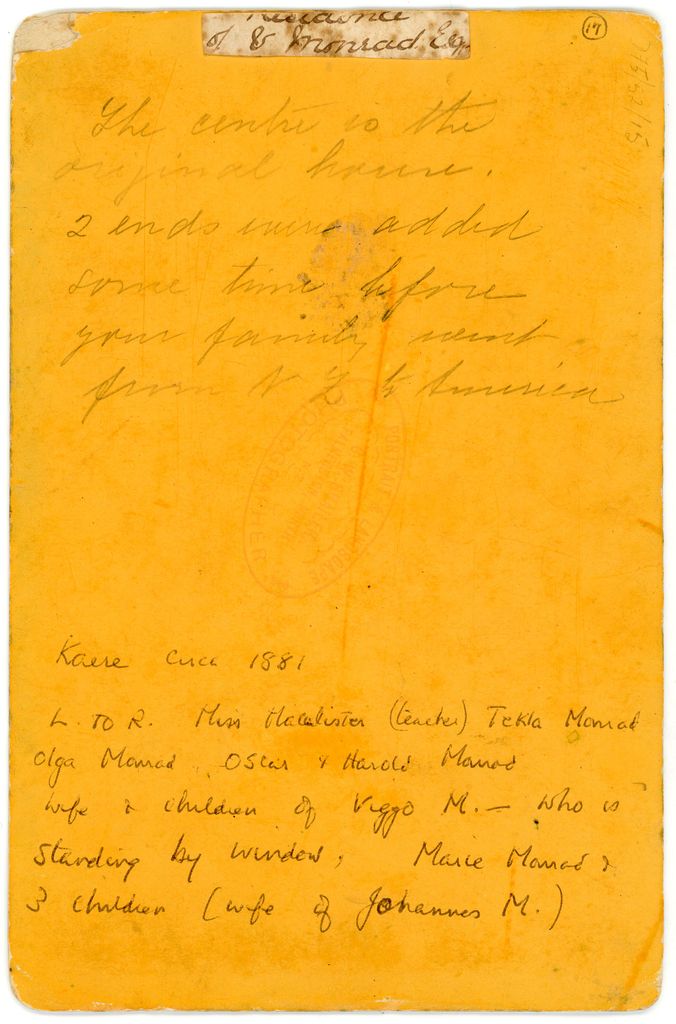 Residence
of V Monrad Esq
17
The centre is the
original house.
2 ends were added
some time before
your family went
from N Z to America
PORTRAIT & LANDSCAPE
PHOTOGRAPHER
PALMERSTON NORTH
N.Z.
Kaere circa 1881
L. TO R. Miss Macalister (teacher) Tekla Monrad
Olga Monrad, OSCar & Harold Monrad
Wife & children of Viggo M. – who is
Standing by window, Marie Monrad &
3 children (wife of Johannes M.)